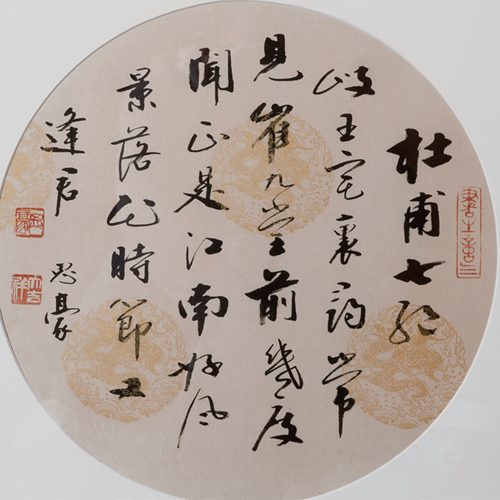 杜甫七絕
歧王宅裏尋常
見崔九堂前幾度
聞正是江南好風
景落花時節又
逢君